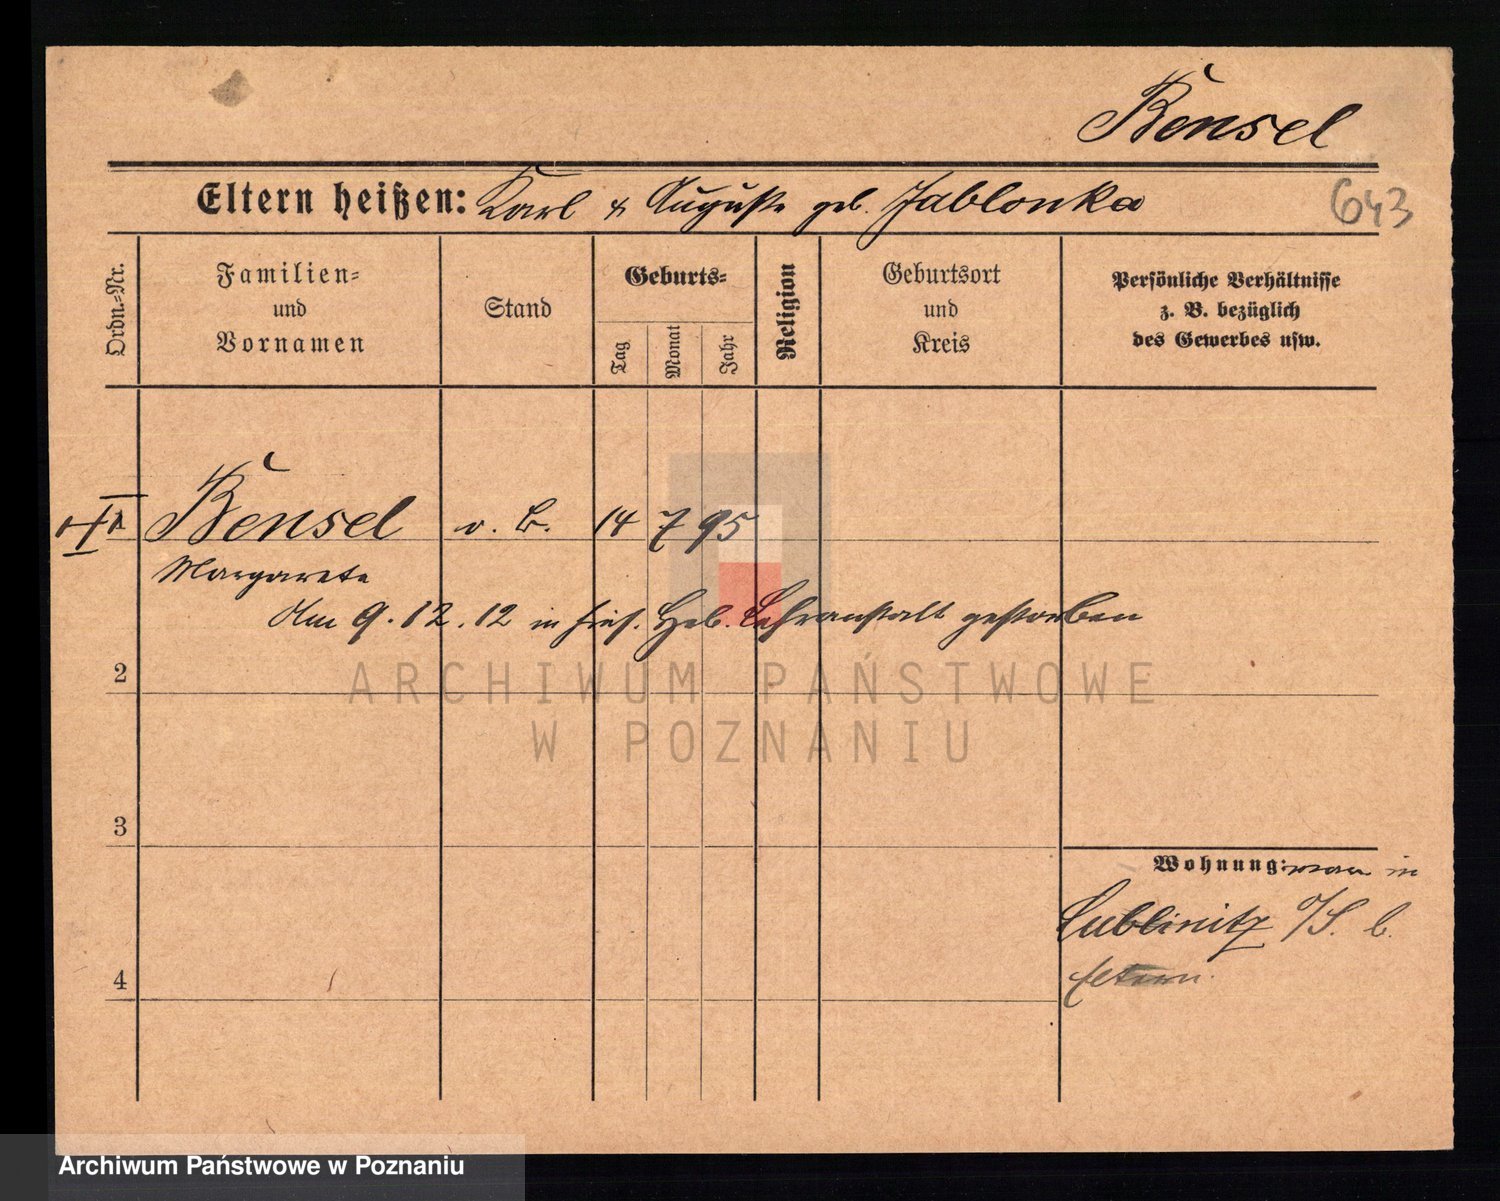 Bensel
Eltern heißen: Karl & Auguste geb. Jablonka
643
Ordn.-Nr.
Familien-
und
Vornamen
Stand
Geburts-
Tag
Monat
Jahr
Religion
Geburtsort
und
Kreis
Persönliche Verhältnisse
z. B. bezüglich
des Gewerbes usw.
Bensel
o. B.
14
7
95
Margarete
Am 9.12.12 in hies. Heb. Lehranstalt gestorben
2
ARCHIWUM PAŃSTWOWE
W POZNANIU
3
Wohnung: war in
Lublinitz O/S. b.
Eltern.
4
Archiwum Państwowe w Poznaniu